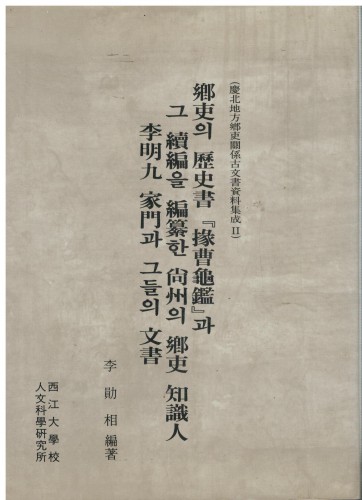 (慶北地方鄕吏關係古文書資料集成 II)
鄕吏의 歷史書『掾曹龜鑑』과
그 續編을 編纂한 尙州의 鄕吏 知識人
李明九 家門과 그들의 文書
李勛相 編著
西江大學校
人文科學硏究所